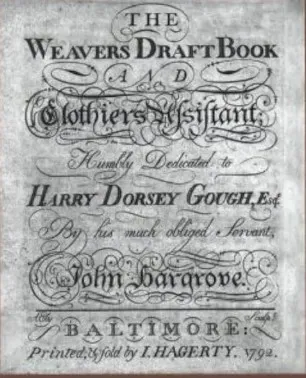 THE
WEAVERS DRAFT BOOK
AND
Clothiers Assistant;
Humbly Dedicated to
HARRY DORSEY GOUGH, Esqr.
By his much obliged Servant,
John Hargrove.
BALTIMORE:
Printed, & sold by I. HAGERTY. 1792.